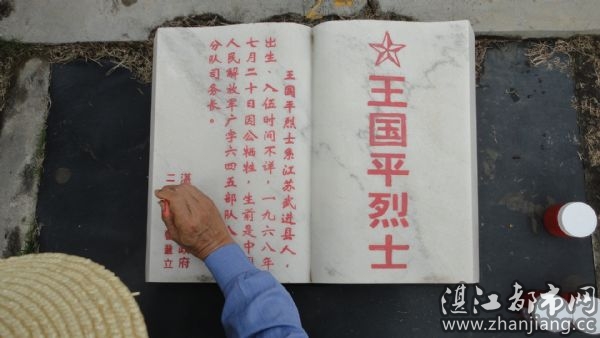 王国平烈士
王国平烈士系江苏武进县人，
出生、入伍时间不详，一九六八年
七月二十日因公牺牲，生前是中
人民解放军广字六四五部队八
分队司务长。
湛 政府
二 立
湛江都市网
www.zhanjiang.cc